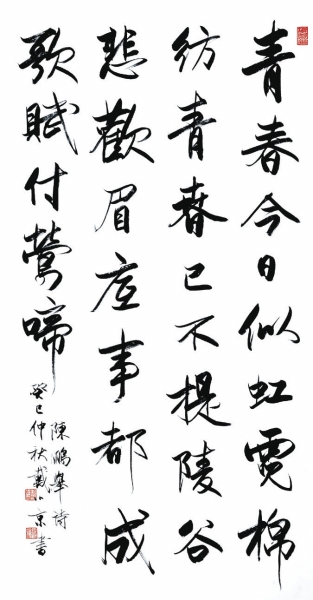 青春今日似虹霓棉
紡青春已不提陵谷
悲歡眉事都成
歌賦付鶯啼
陳鵬舉詩
癸巳仲秋戴小京書